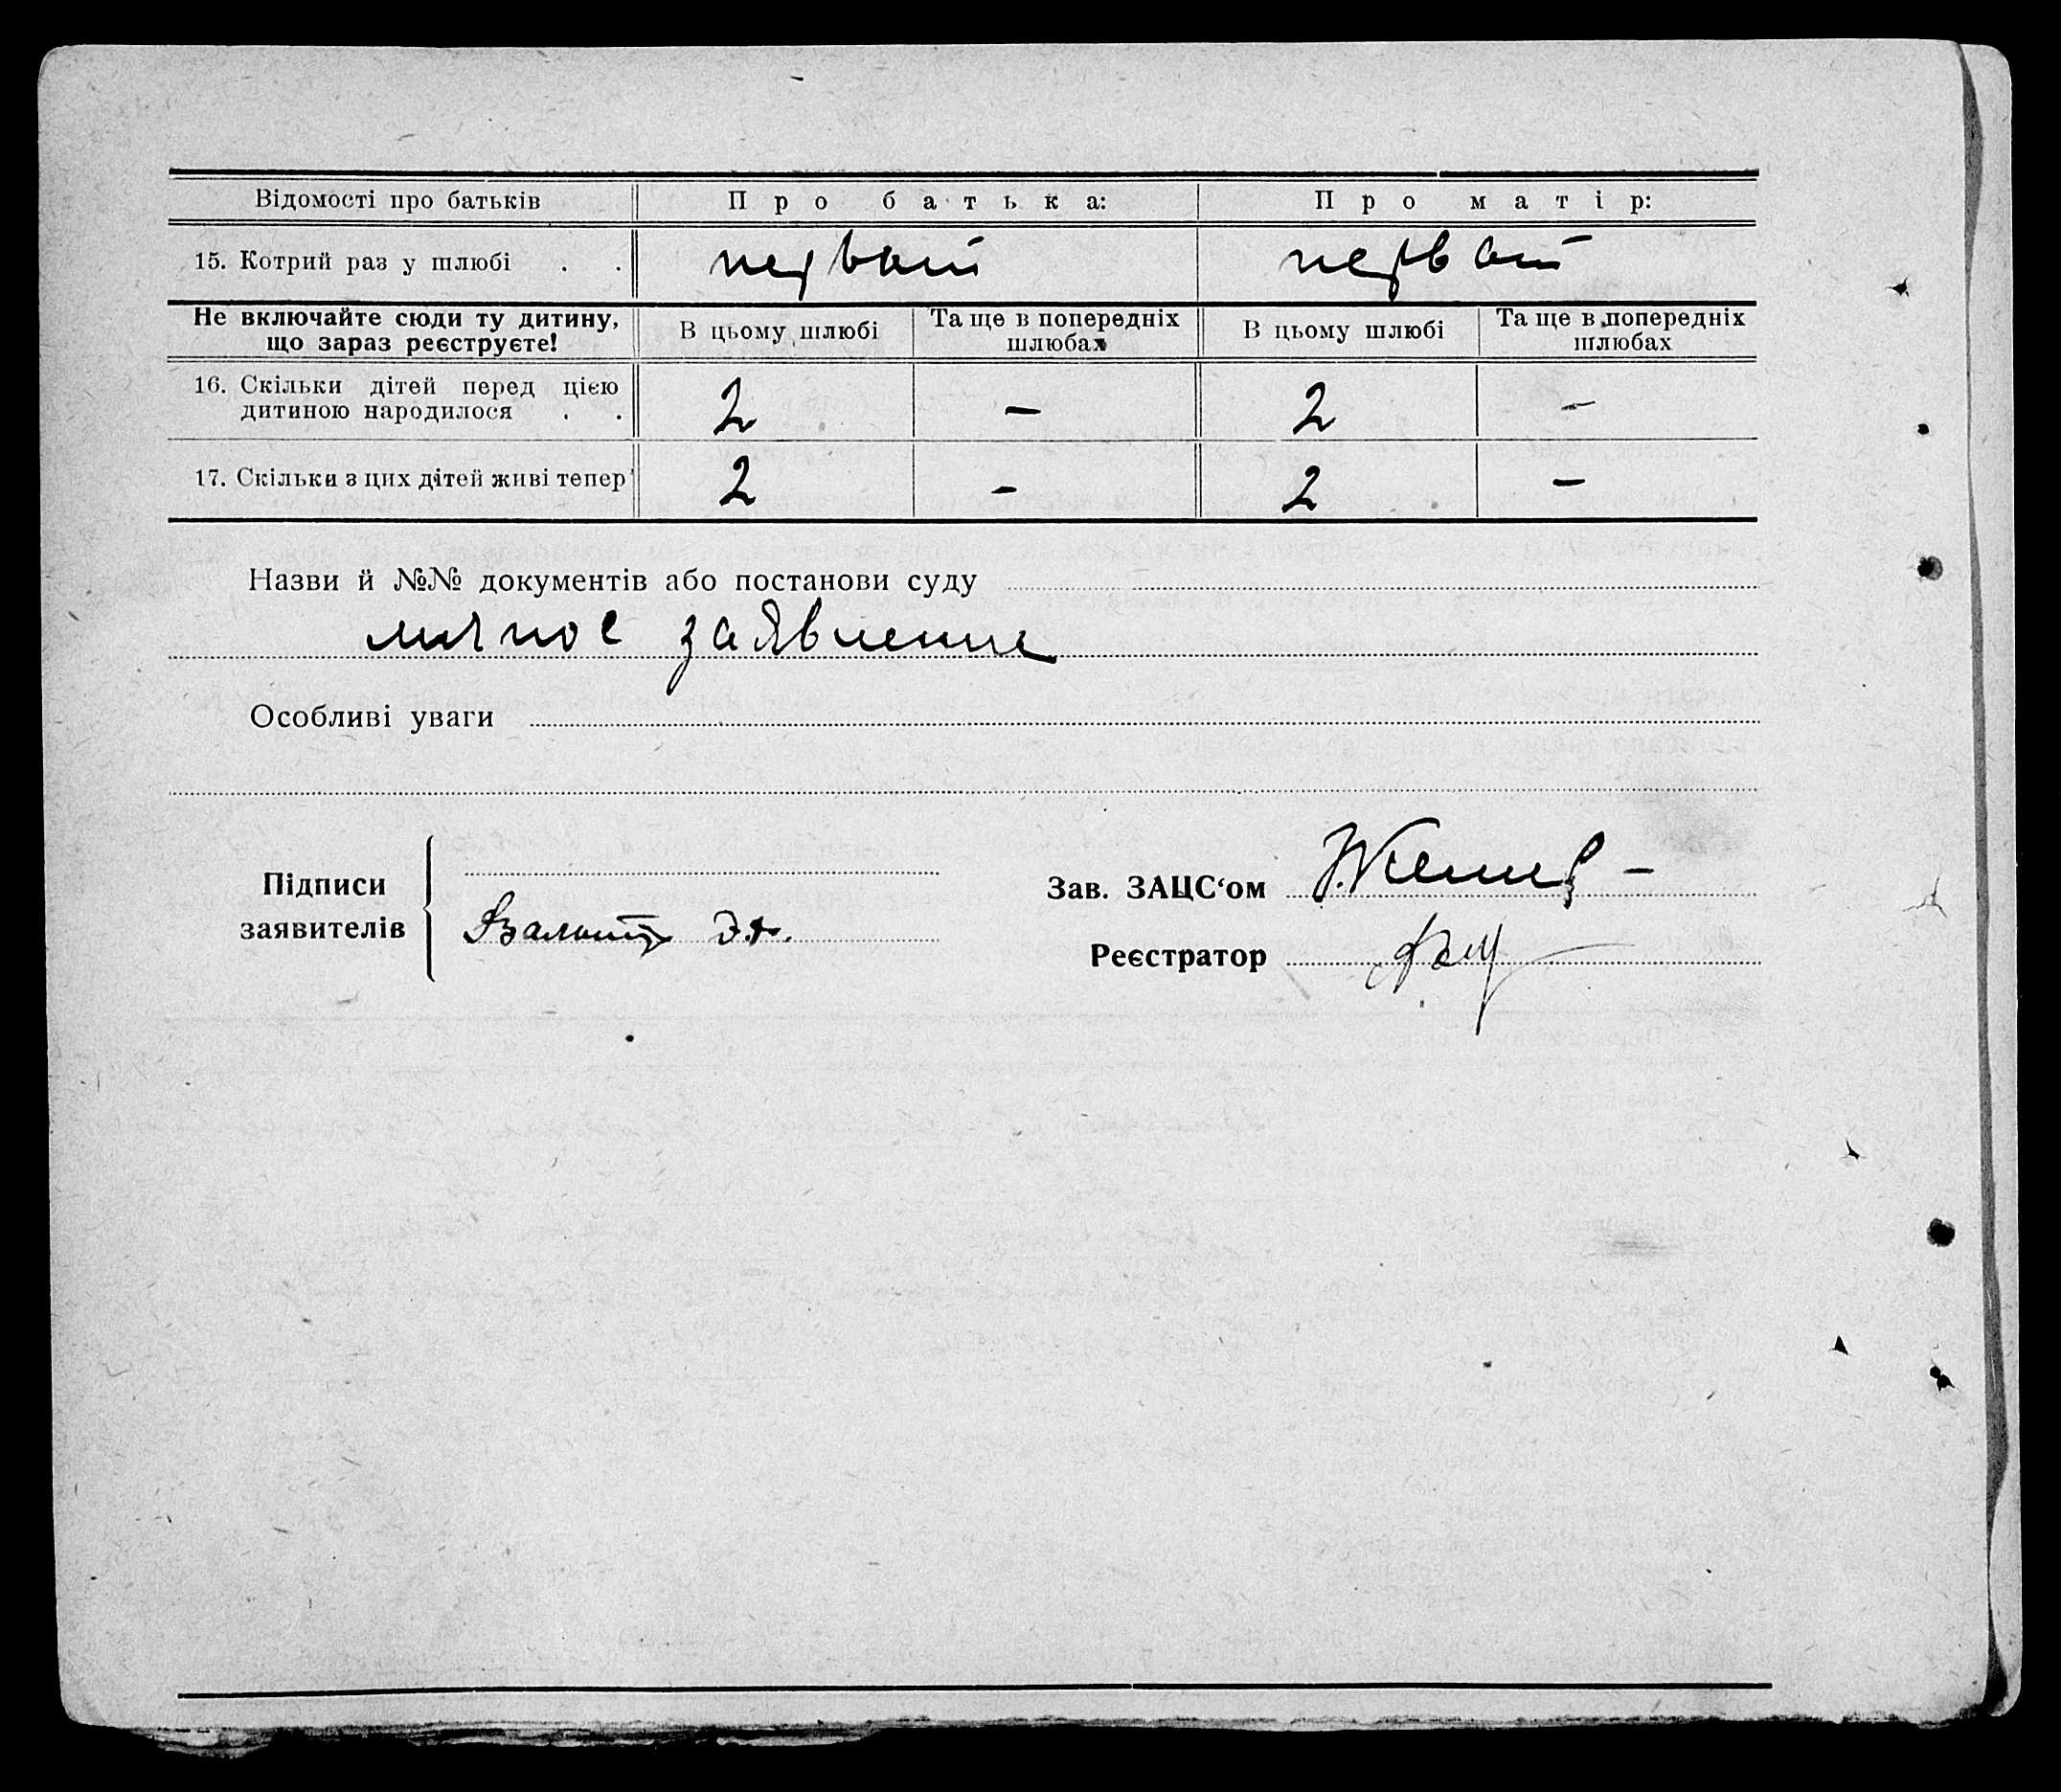 Відомості про батьків Про батька: Про матір:
15. Котрий раз у шлюбі . . первый первый
Не включайте сюди ту дитину, що зараз реєструєте! В цьому шлюбі Та ще в попередніх шлюбах В цьому шлюбі Та ще в попередніх шлюбах
16. Скільки дітей перед цією
дитиною народилося . . 2 — 2 —
17. Скільки з цих дітей живі тепер 2 — 2 —
Назви й №№ документів або постанови суду
личное заявление
Особливі уваги
Підписи
заявителів
Зав. ЗАЦС'ом
Реєстратор